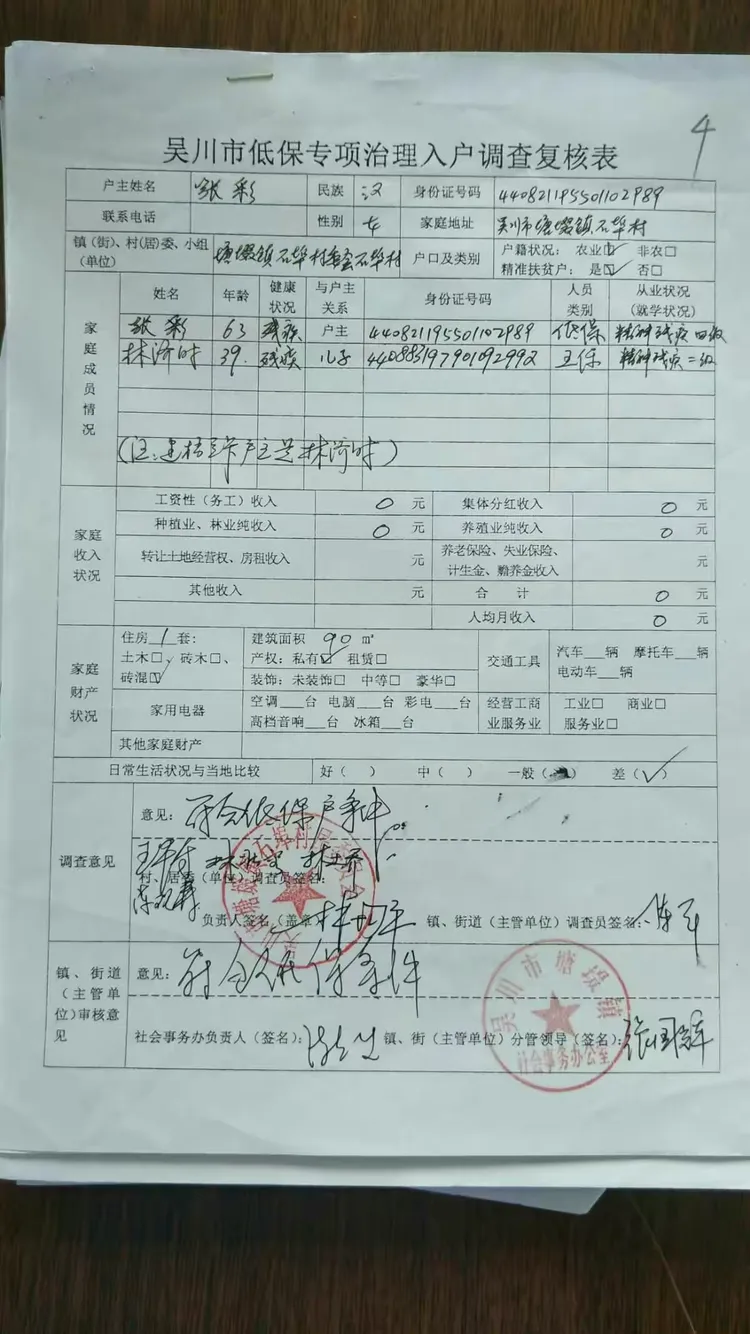 4
吴川市低保专项治理入户调查复核表
户主姓名 张彩 民族 汉 身份证号码 440821195501102989
联系电话 性别 女 家庭地址 吴川市塘㙍镇石埠村
镇(街)、村(居)委、小组(单位) 塘㙍镇石埠村委会石埠村 户口及类别 户籍状况: 农业☑ 非农□
精准扶贫户: 是☑ 否□
家庭成员情况 姓名 年龄 健康状况 与户主关系 身份证号码 人员类别 从业状况(就学状况)
张彩 63 残疾 户主 440821195501102989 低保 精神残疾四级
林济时 39. 残疾 儿子 440883197901092992 五保 精神残疾二级
(注:建档立卡户主是林济时)
家庭收入状况 工资性(务工)收入 0 元 集体分红收入 0 元
种植业、林业纯收入 0 元 养殖业纯收入 0 元
转让土地经营权、房租收入 元 养老保险、失业保险、计生金、赡养金收入 元
其他收入 元 合 计 0 元
人均月收入 0 元
家庭财产状况 住房 1 套: 土木□ 砖木□、砖混☑ 建筑面积 90 ㎡
产权: 私有☑ 租赁□ 交通工具 汽车___辆 摩托车___辆
装饰: 未装饰□ 中等□ 豪华□ 电动车___辆
家用电器 空调___台 电脑___台 彩电___台 经营工商业服务业 工业□ 商业□
高档音响___台 冰箱___台 服务业□
其他家庭财产
日常生活状况与当地比较 好( ) 中( ) 一般( ) 差(✓)
调查意见 意见: 符合低保户条件。
村、居委(单位)调查员签名:
负责人签名(盖章) 镇、街道(主管单位)调查员签名:
镇、街道(主管单位)审核意见 意见: 符合低保条件
社会事务办负责人(签名): 镇、街(主管单位)分管领导(签名):
吴川市塘㙍镇
社会事务办公室